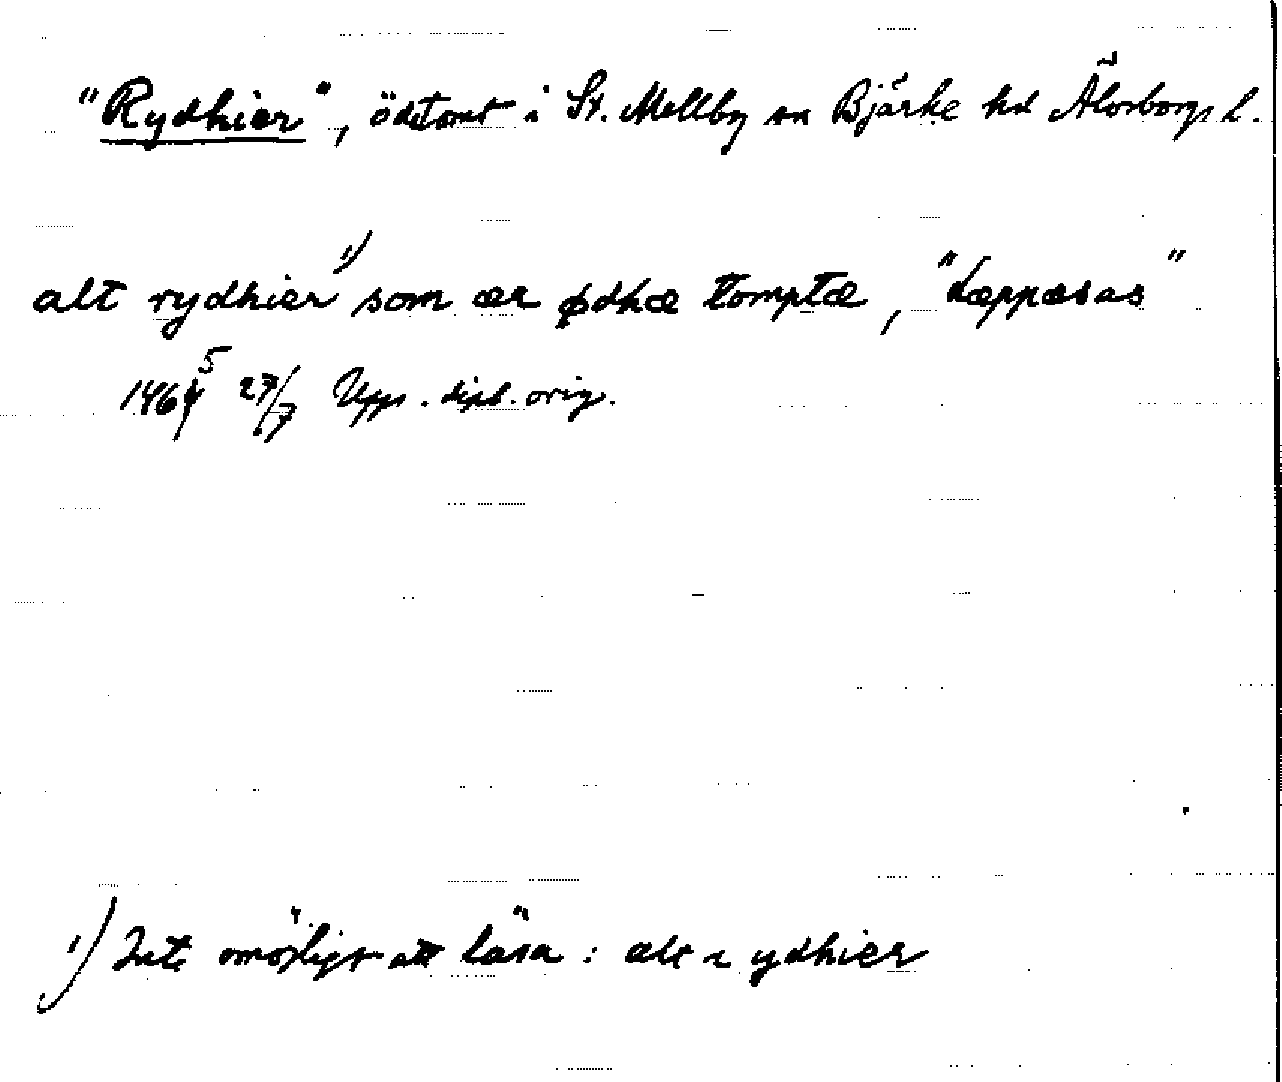 "Rydhier", ödetomt i St. Mellby sn Bjärke hd Älvsborgs l.
alt rydhier 1) som ær ødhæ tomptæ, "Læppæsas"
1465 27/7 Upps. dipl. orig.
1) Inte omöjligt att läsa: alt r ydhier